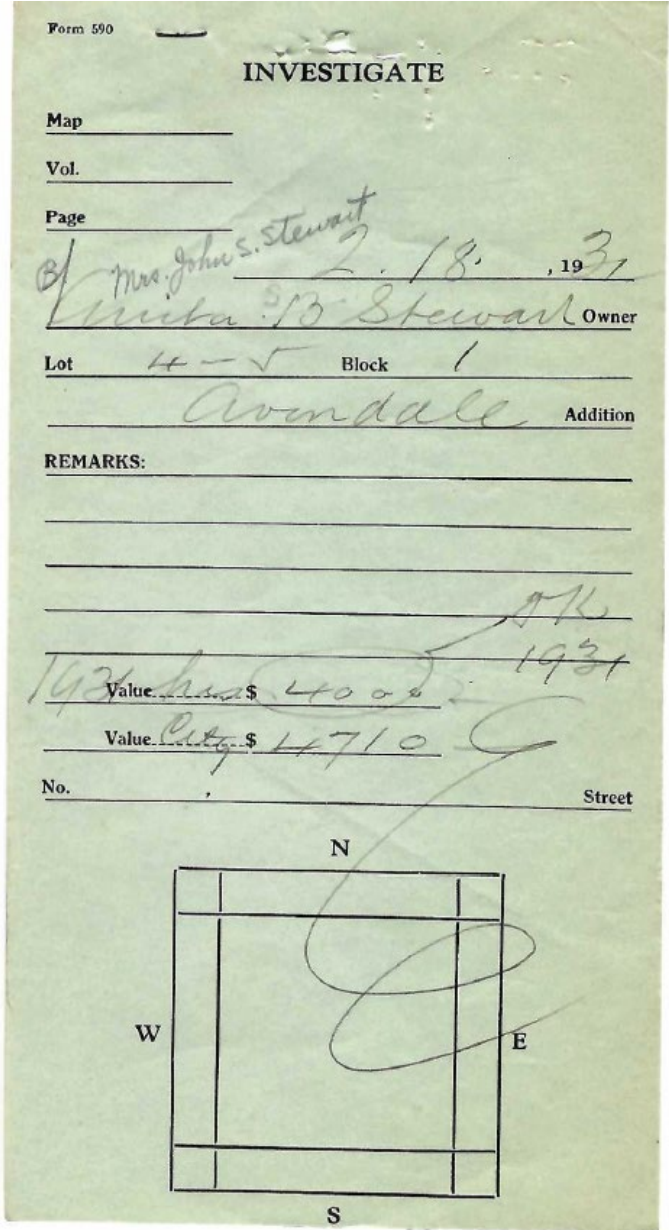 Form 590
INVESTIGATE
Map
Vol.
Page
Mrs. John S. Stewart
2. 18. , 1931
B Stewart Owner
Lot 4-5 Block 1
Avondale Addition
REMARKS:
OK
1931
1931 Value $ 4000
Value City $ 4710
No. Street
N
W E
S